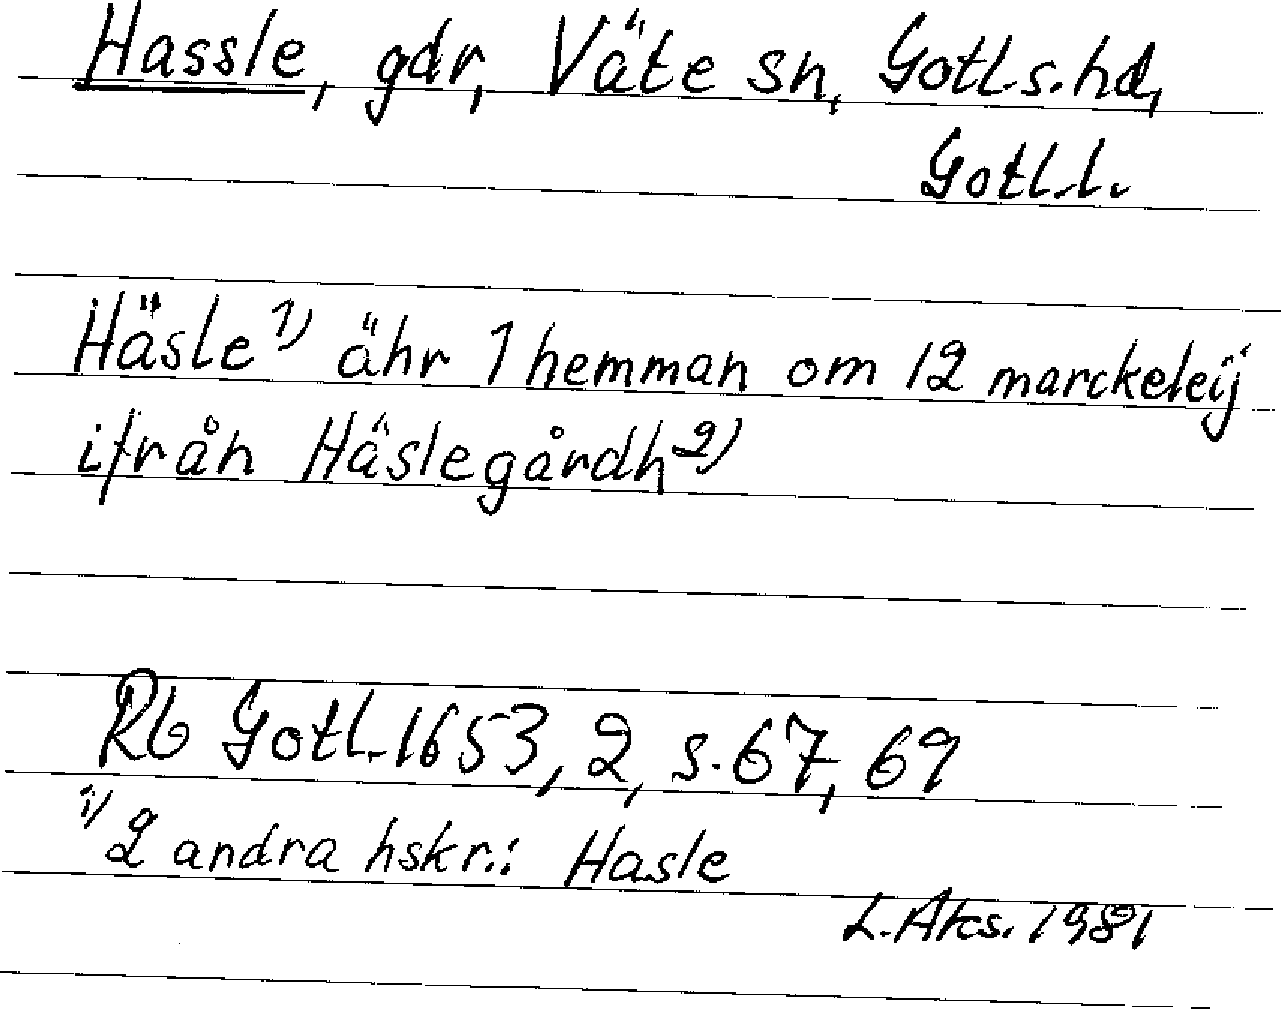 Hassle, gdr, Väte sn, Gotl.s.hd,
Gotl.l.
Häsle 1) ähr 1 hemman om 12 marckeleij
ifrån Häslegårdh 2)
Rb Gotl. 1653, 2, s. 67, 69
1) 2 andra hskr.: Hasle
L. Aks. 1981